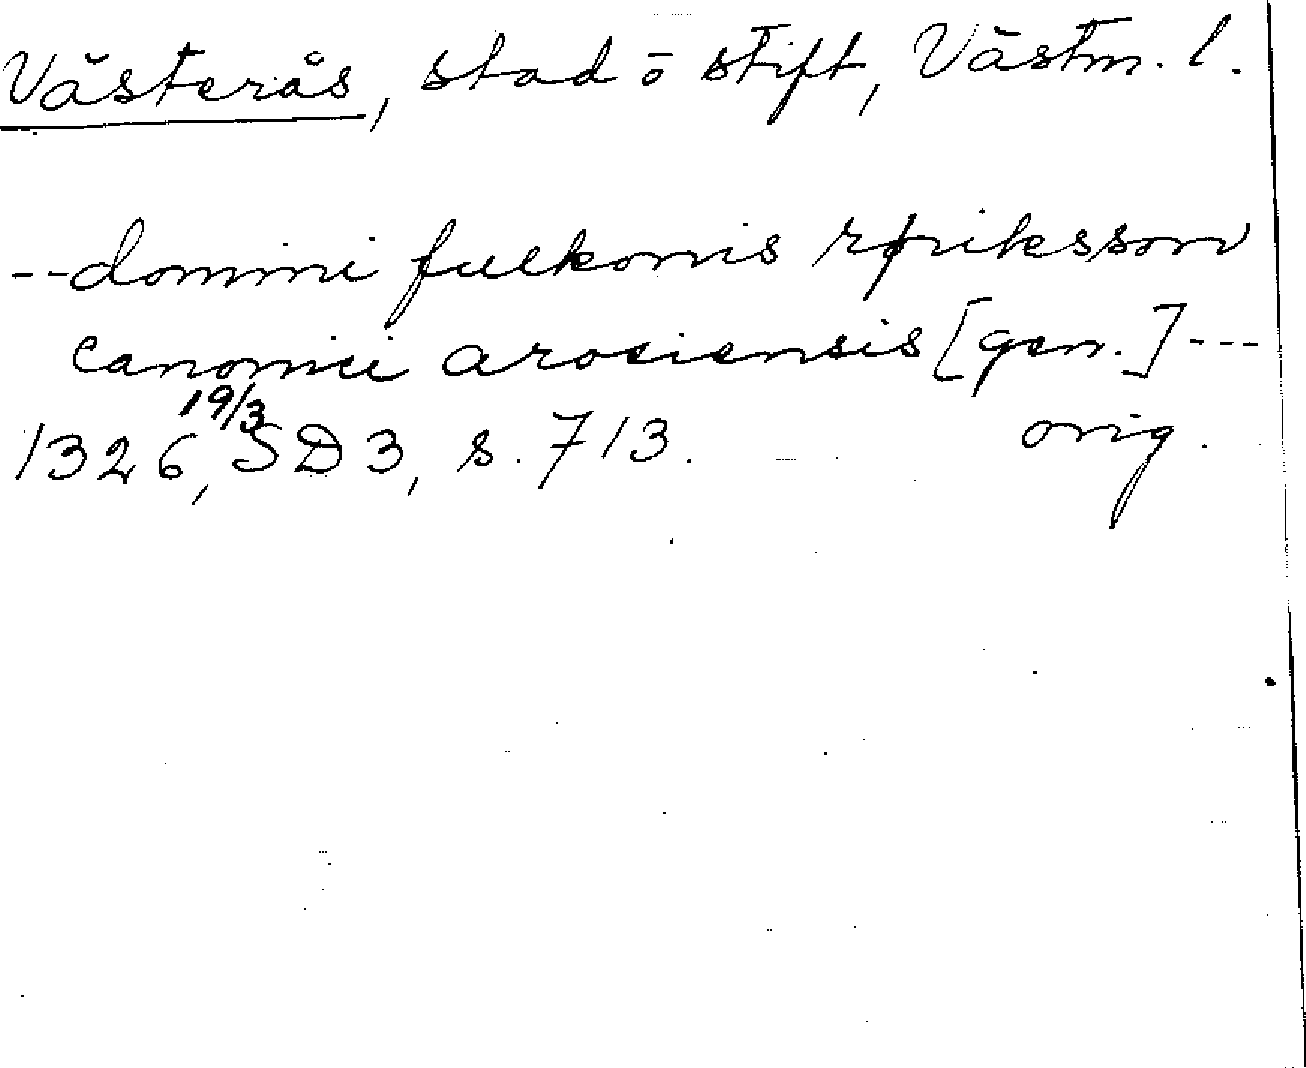 Västerås, stad o stift, Västm. l.
--domini fulkonis røriksson
canonici arosiensis [gen.] ---
19/3
1326, SD 3, s. 713. orig.